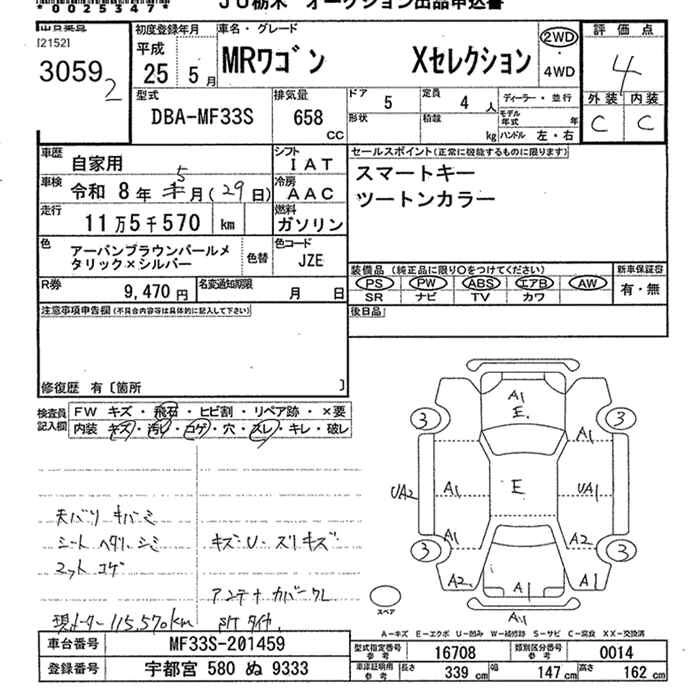 *0025347*
JU栃木 オークション出品申込書
[2152]
30592
初度登録年月
平成
25 5 月
車名・グレード
MRワゴン Xセレクション
2WD
・
4WD
評価点
4
外装 内装
C C
型式
DBA-MF33S
排気量
658
CC
ドア 5
形状
定員 4 人
積載 kg
ディーラー・並行
モデル年式 年
ハンドル 左・右
車歴
自家用
シフト
IAT
車検
令和 8年 5月(29日)
冷房
AAC
走行
11万5千570 km
燃料
ガソリン
色
アーバンブラウンパールメ
タリック×シルバー
色替
色コード
JZE
R券
9,470 円
名変通知期限
月 日
セールスポイント(正常に機能するものに限ります)
スマートキー
ツートンカラー
装備品(純正品に限り○をつけてください)
PS PW ABS エアB AW
SR ナビ TV カワ
新車保証書
有・無
後日品
注意事項申告欄(不具合内容等は具体的に記入して下さい)
修復歴 有〔箇所 〕
検査員
記入欄
FW キズ・飛石・ヒビ割・リペア跡・×要
内装 キズ・汚レ・コゲ・穴・スレ・キレ・破レ
天バリ キバミ
シート ヘタリ シミ
マット コゲ
現メーター115,570km
キズU スリキズ
アンテナカバークレ
P/T タイヤ
A1
E
3 3
A1
UA2 A1 E UA1
A1 A2
3 3
A2 A1 A1
A1
スペア
A-キズ E-エクボ U-凹み W-補修跡 S-サビ C-腐食 XX-交換済
車台番号
MF33S-201459
登録番号
宇都宮 580 ぬ 9333
型式指定番号
参考
16708
類別区分番号
参考
0014
車庫証明用
参考
長さ 339 cm 幅 147 cm 高さ 162 cm